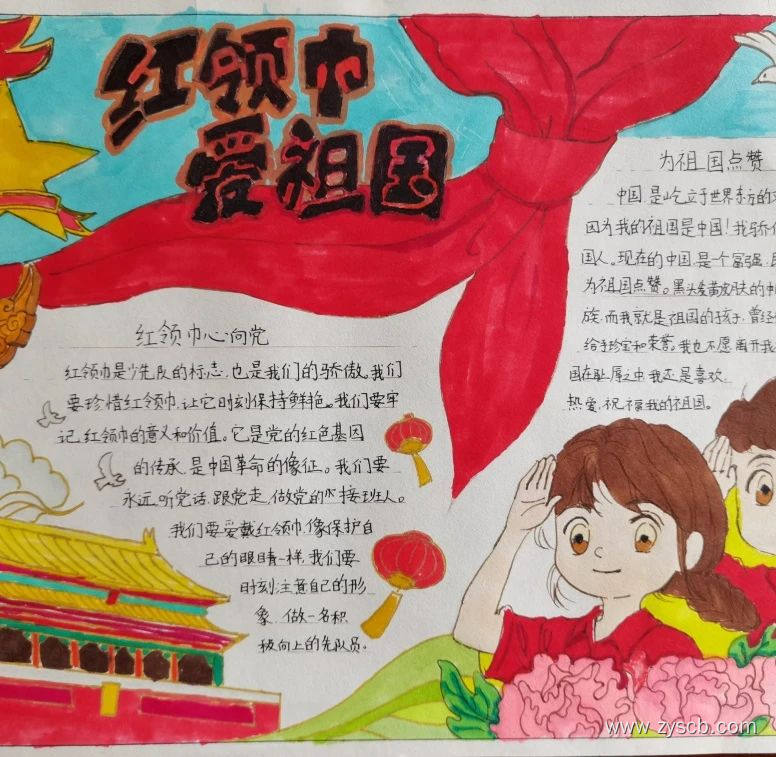 红领巾
爱祖国
红领巾心向党
红领巾是少先队的标志,也是我们的骄傲。我们
要珍惜红领巾,让它时刻保持鲜艳。我们要牢
记红领巾的意义和价值。它是党的红色基因
的传承,是中国革命的像征。我们要
永远听党话,跟党走,做党的接班人。
我们要爱戴红领巾,像保护自
己的眼睛一样,我们要
时刻注意自己的形
象,做一名积
极向上的先队员。
为祖国点赞
中国,是屹立于世界东方的
因为我的祖国是中国!我骄
国人。现在的中国,是一个富强,
为祖国点赞。黑头发黄皮肤的
族,而我就是祖国的孩子,曾经
给予珍宝和荣誉。我也不愿离开我
国在耻辱之中我还是喜欢,
热爱,祝福我的祖国。
www.zyscb.com